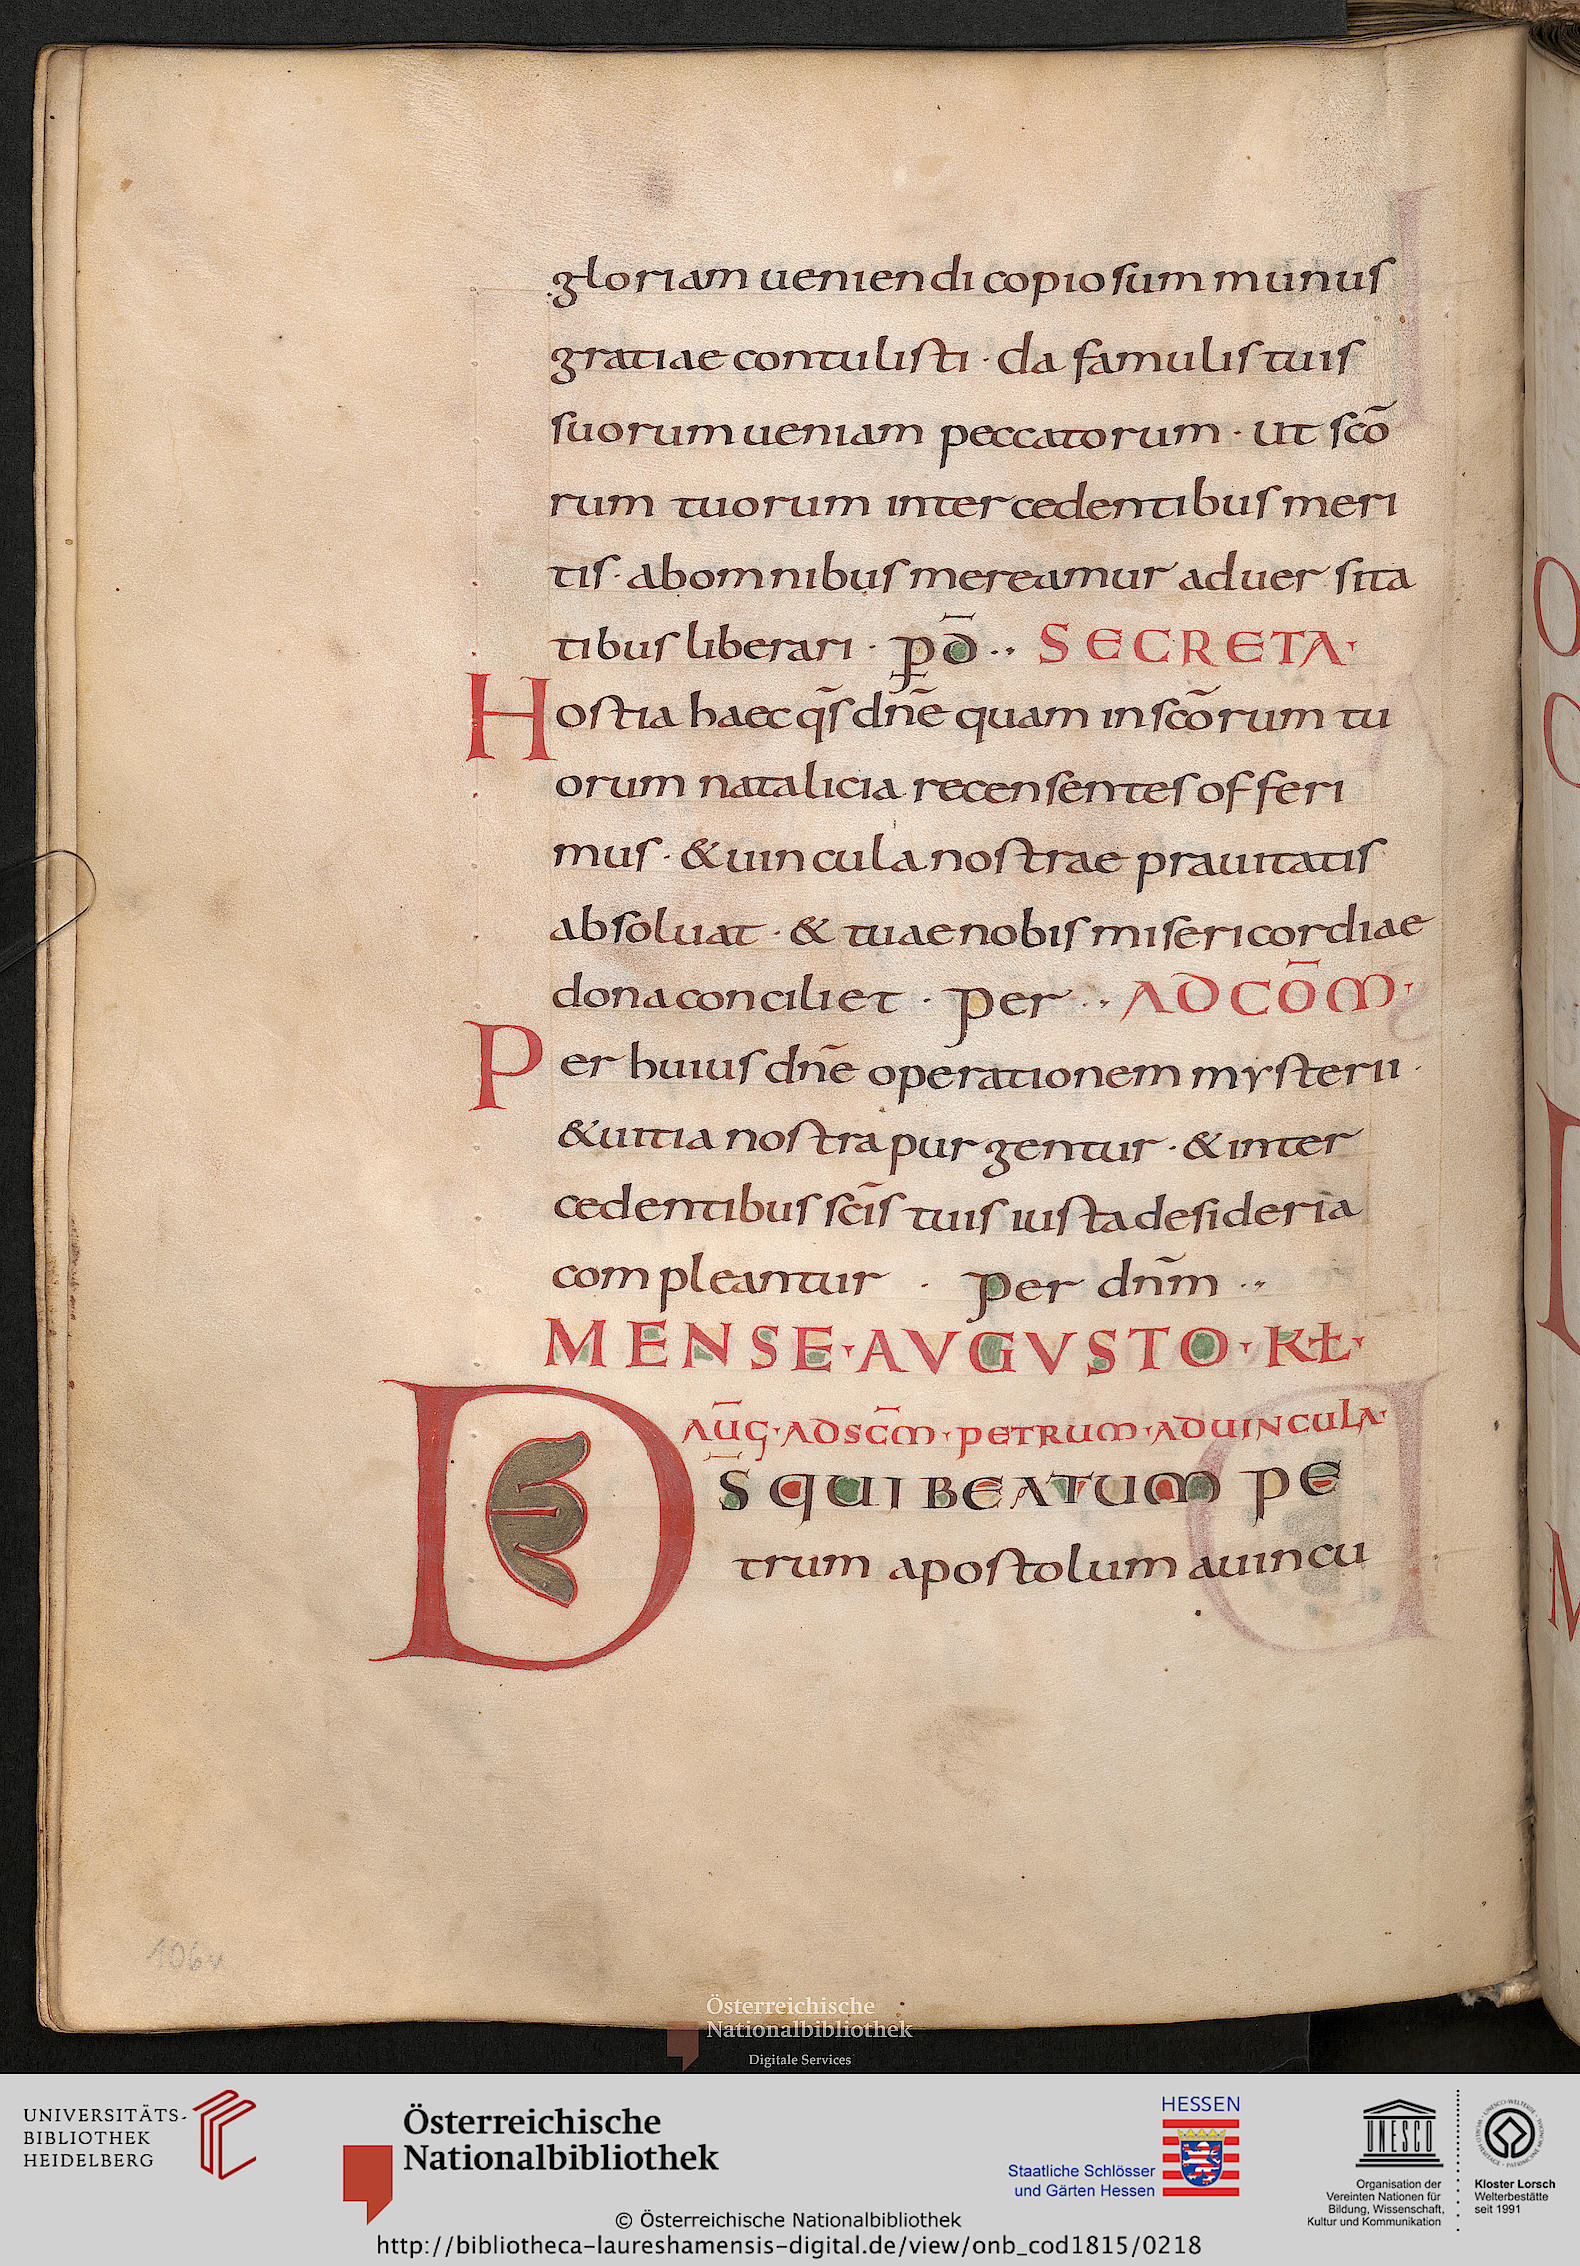 gloriam ueniendi copiosum munus
gratiae contulisti · da famulis tuis
suorum ueniam peccatorum · ut scō
rum tuorum intercedentibus meri
tis · ab omnibus mereamur aduersita
tibus liberari · p d̄ ·· SECRETA·
Hostia haec qs̄ dn̄e quam in scōrum tu
orum natalicia recensentes offeri
mus · & uincula nostrae prauitatis
absoluat · & tuae nobis misericordiae
dona conciliet · per ·· AD COM̄·
Per huius dn̄e operationem mysterii ·
& uitia nostra purgentur · & inter
cedentibus scīs tuis iusta desideria
compleantur · per dn̄m ··
MENSE · AUGUSTO · Kł·
AŪG · AD SC̄M · PETRUM · AD UINCULA·
DS̄ QUI BEATUM PE
trum apostolum a uincu
106v
Österreichische
Nationalbibliothek
Digitale Services
UNIVERSITÄTS-
BIBLIOTHEK
HEIDELBERG
Österreichische
Nationalbibliothek
HESSEN
Staatliche Schlösser
und Gärten Hessen
UNESCO
Organisation der
Vereinten Nationen für
Bildung, Wissenschaft,
Kultur und Kommunikation
Kloster Lorsch
Welterbestätte
seit 1991
© Österreichische Nationalbibliothek
http://bibliotheca-laureshamensis-digital.de/view/onb_cod1815/0218